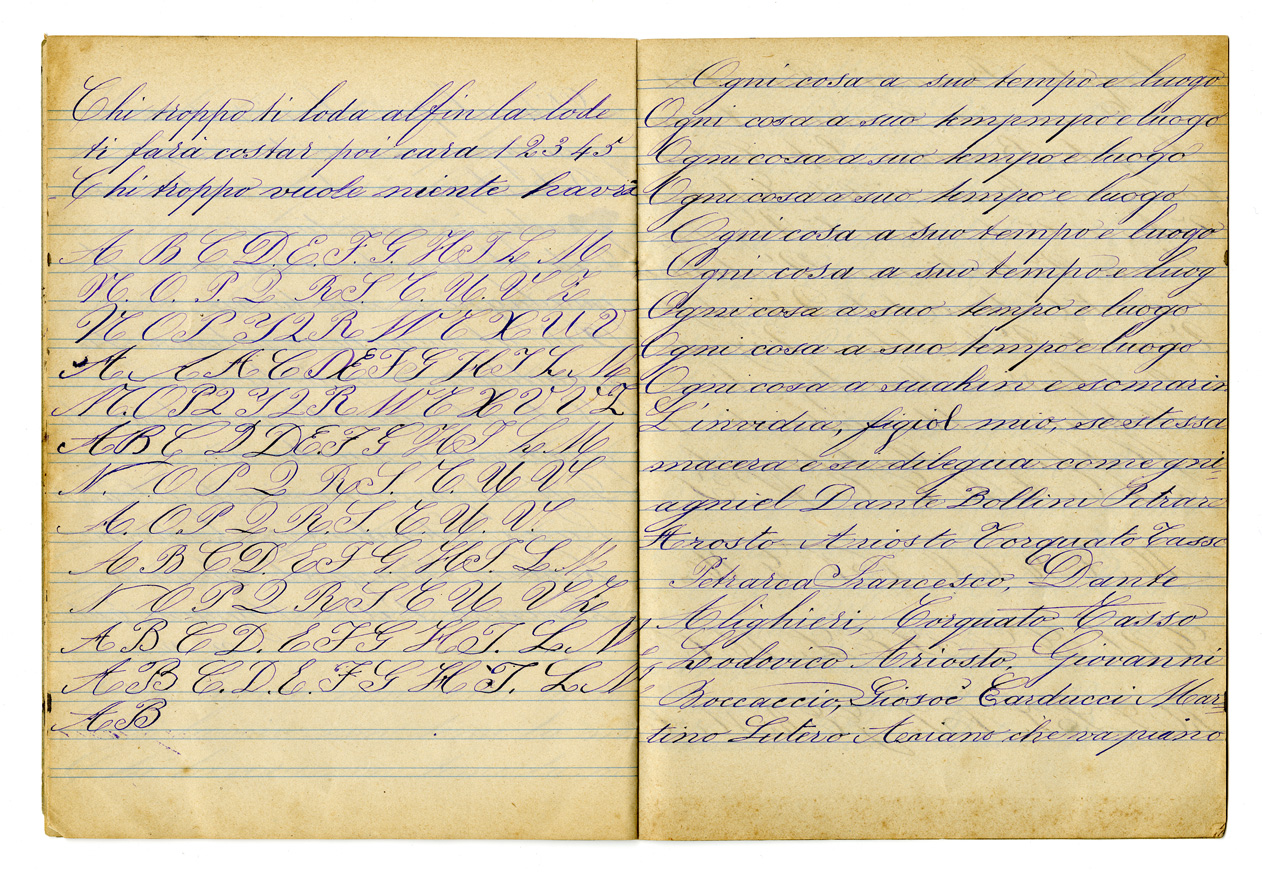 Chi troppo ti loda alfin la lode
ti farà costar poi cara 1 2 3 4 5
Chi troppo vuole niente havrà
A B C D. E. F. G. H I L M
N. O. P. Q R S. T. U. V Z
N O P Y 2 R W E X U V
A A A C D E F G H I L M
N. O P Q Y 2 R W E X V V Z
A B C D D E F G H I L M
N. O P Q R S. T. U V
A. O. P Q R. S. T. U. V.
A B C D. E F G. H I. L M
N O P Q R S T U V Z
A B C D. E F G H I. L M
A B C. D. E. F G H I. L M
A B
Ogni cosa a suo tempo e luogo
Ogni cosa a suo tempmpo e luogo
Ogni cosa a suo tempo e luogo
Ogni cosa a suo tempo e luogo
Ogni cosa a suo tempo e luogo
Ogni cosa a suo tempo e luog
Ogni cosa a suo tempo e luogo
Ogni cosa a suo tempo e luogo
Ogni cosa a e somarin
L'invidia, figiol mio, se stessa
macera e si dilegua come gni-
agniel Dante Bollini Petrarc
Arosto Ariosto Torquato Tasso
Petrarca Francesco, Dante
Alighieri, Torquato Tasso
Lodovico Ariosto, Giovanni
Boccaccio, Giosoè Carducci Mar-
tino Lutero che va piano